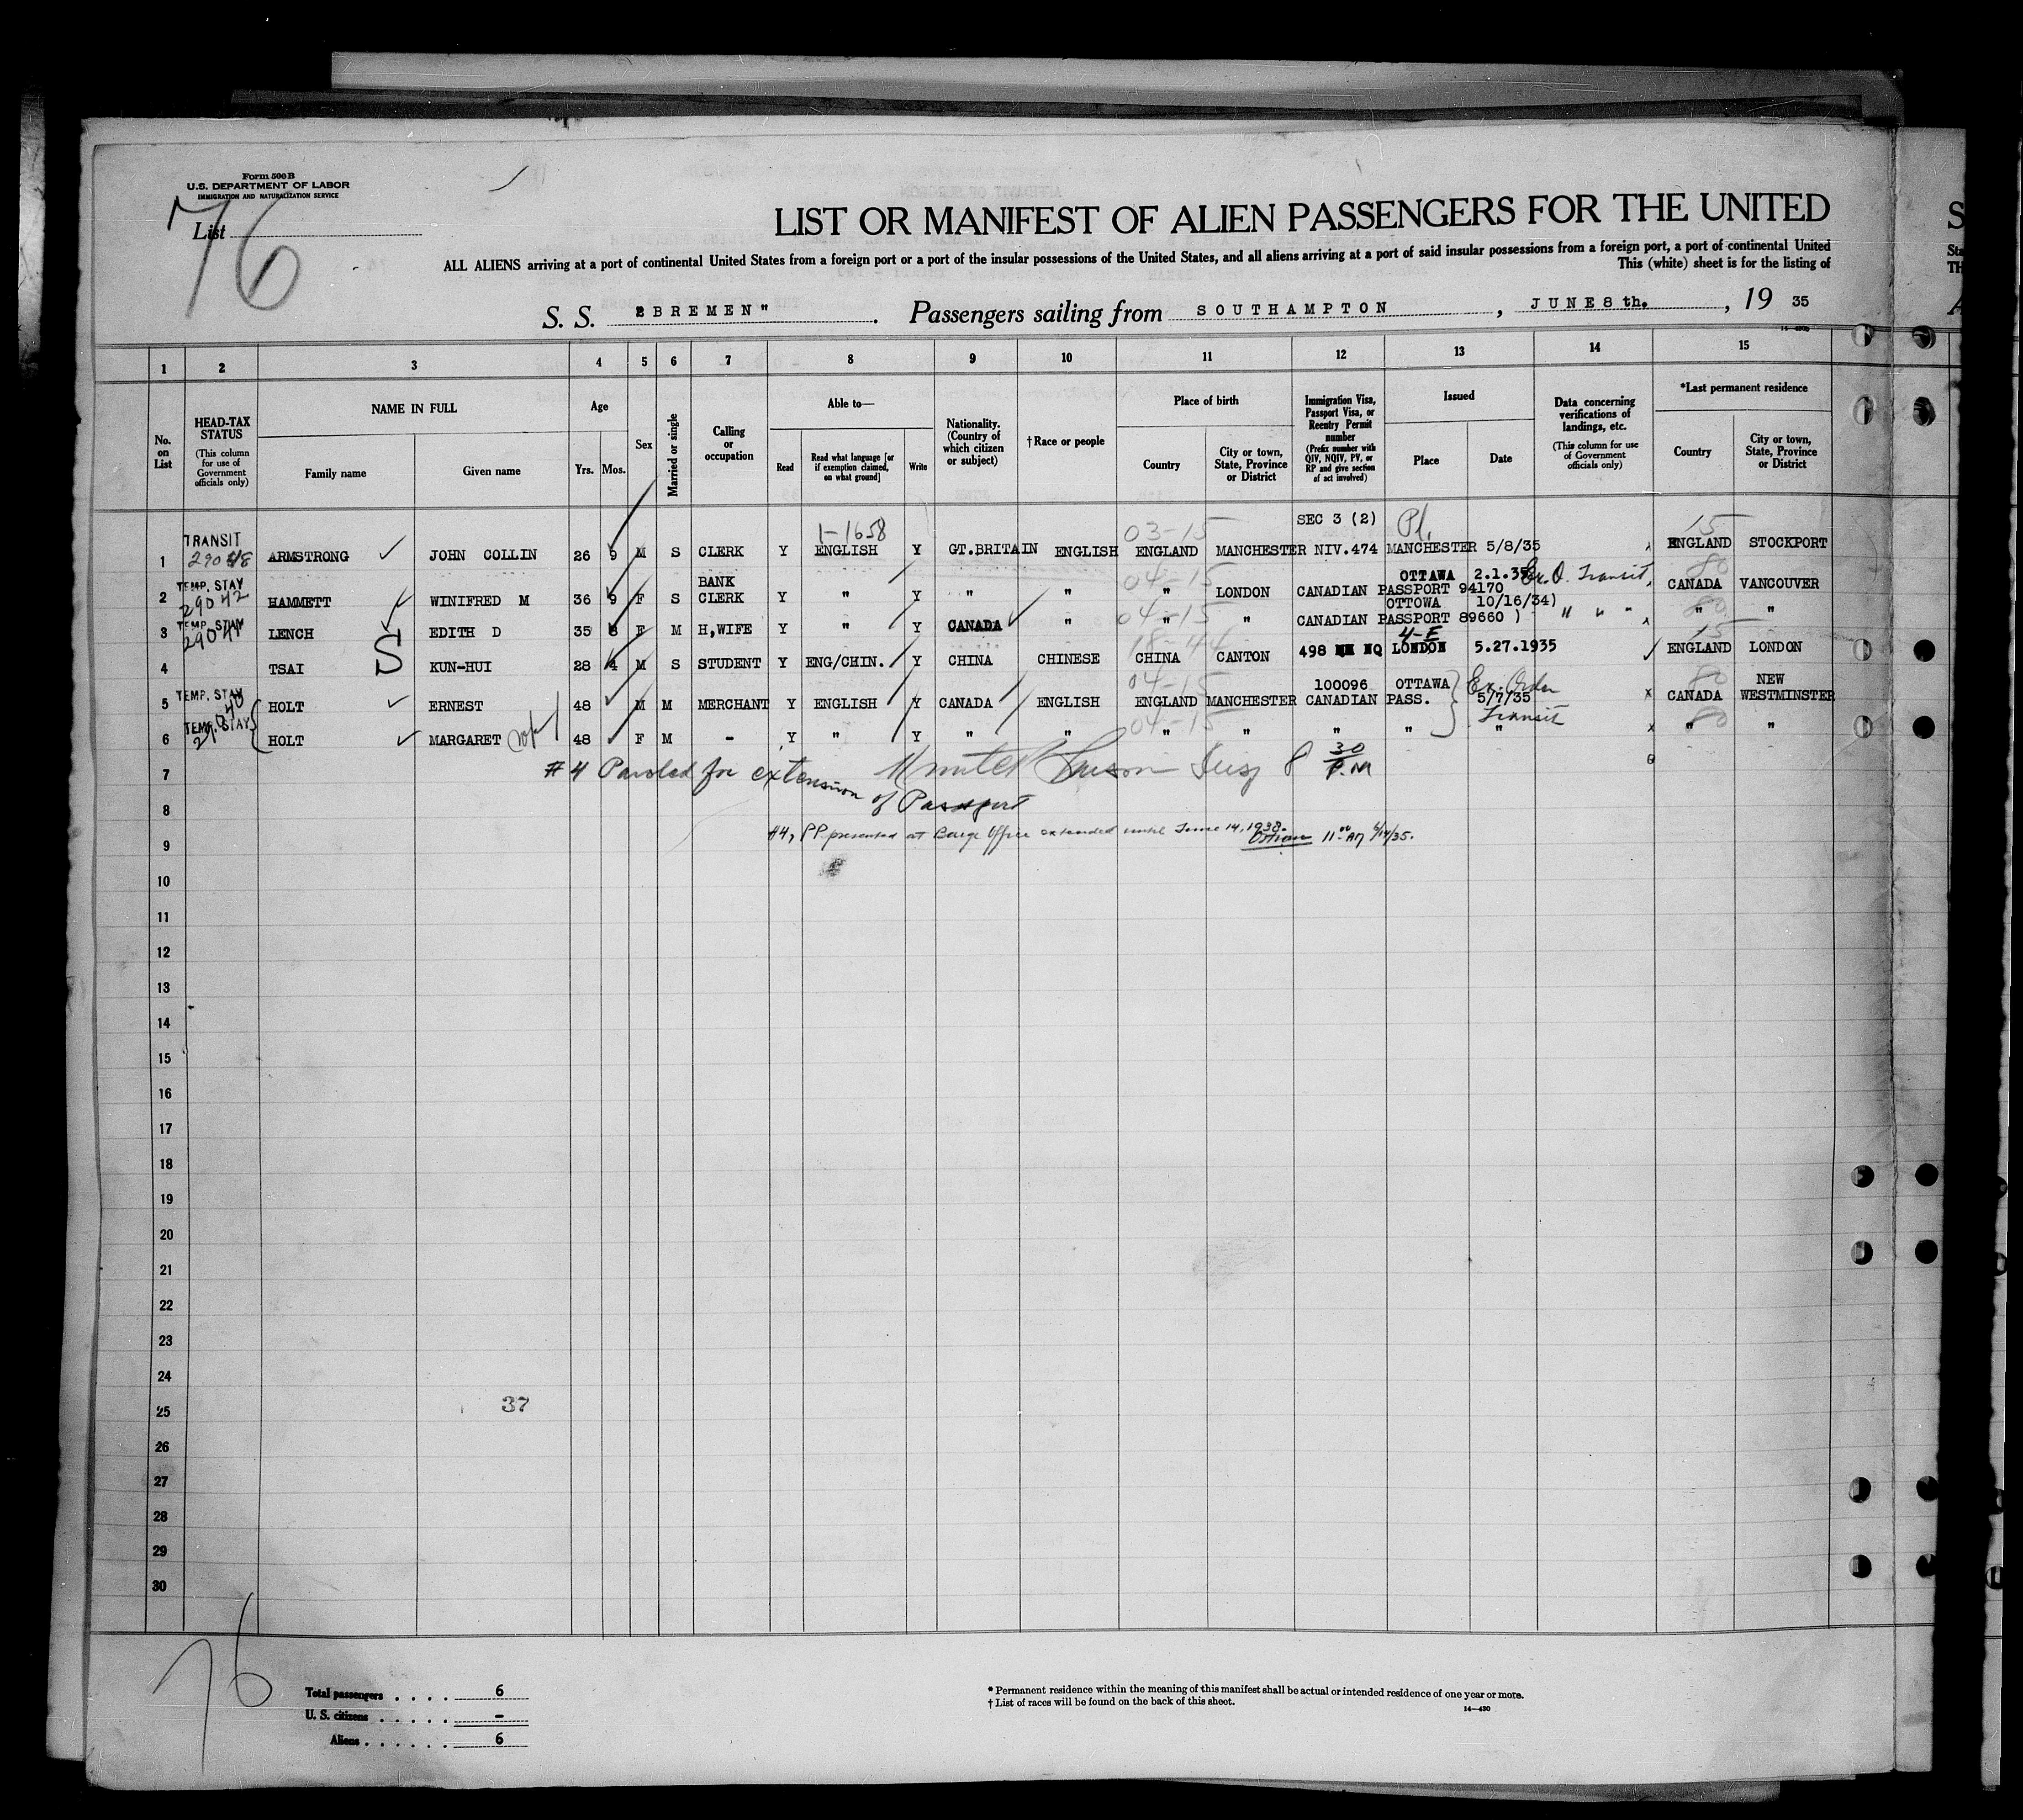 Form 500 B
U.S. DEPARTMENT OF LABOR
IMMIGRATION AND NATURALIZATION SERVICE
List
76
LIST OR MANIFEST OF ALIEN PASSENGERS FOR THE UNITED
ALL ALIENS arriving at a port of continental United States from a foreign port or a port of the insular possessions of the United States, and all aliens arriving at a port of said insular possessions from a foreign port, a port of continental United
This (white) sheet is for the listing of
S. S. "BREMEN" . Passengers sailing from SOUTHAMPTON , JUNE 8 th. , 19 35
1 2 3 4 5 6 7 8 9 10 11 12 13 14 15
No. on List
HEAD-TAX STATUS (This column for use of Government officials only)
NAME IN FULL
Family name Given name
Age
Yrs. Mos.
Sex
Married or single
Calling or occupation
Able to—
Read
Read what language [or if exemption claimed, on what ground]
Write
Nationality. (Country of which citizen or subject)
†Race or people
Place of birth
Country
City or town, State, Province or District
Immigration Visa, Passport Visa, or Reentry Permit number (Prefix number with QIV, NQIV, PV, or RP and give section of act involved)
Issued
Place Date
Data concerning verifications of landings, etc. (This column for use of Government officials only)
*Last permanent residence
Country
City or town, State, Province or District
1-1658 03-15 SEC 3 (2) Pl. 15
1 TRANSIT 29048 ARMSTRONG JOHN COLLIN 26 9 M S CLERK Y ENGLISH Y GT.BRITAIN ENGLISH ENGLAND MANCHESTER NIV.474 MANCHESTER 5/8/35 x ENGLAND STOCKPORT
BANK 04-15 OTTAWA 2.1.35 Ex. O. Transit, 80
2 TEMP. STAY 29042 HAMMETT WINIFRED M 36 9 F S CLERK Y " Y " " " LONDON CANADIAN PASSPORT 94170 CANADA VANCOUVER
04-15 OTTOWA 10/16/34) 80
3 TEMP. STAY 29041 LENCH EDITH D 35 8 F M H,WIFE Y " Y CANADA " " " CANADIAN PASSPORT 89660 ) " " " x " "
18-44 4-E 15
4 TSAI S KUN-HUI 28 4 M S STUDENT Y ENG/CHIN. Y CHINA CHINESE CHINA CANTON 498 NQ LONDON 5.27.1935 ENGLAND LONDON
04-15 100096 OTTAWA Ex. Order 80 NEW
5 TEMP. STAY HOLT ERNEST 48 M M MERCHANT Y ENGLISH Y CANADA ENGLISH ENGLAND MANCHESTER CANADIAN PASS. 5/7/35 x CANADA WESTMINSTER
04-15 Transit 80
6 TEMP. STAY HOLT MARGARET 48 F M - Y " Y " " " " " " " x " "
7 #4 Paroled for extension 8 30 P.M
of Passport
8
#4, PP presented at Barge Office extended until June 14, 1938. 11 00 AM 6/14/35.
9
10
11
12
13
14
15
16
17
18
19
20
21
22
23
24
37
25
26
27
28
29
30
76
Total passengers . . . . 6
U. S. citizens . . . . . –
Aliens . . . . . . 6
* Permanent residence within the meaning of this manifest shall be actual or intended residence of one year or more.
† List of races will be found on the back of this sheet.
14—430